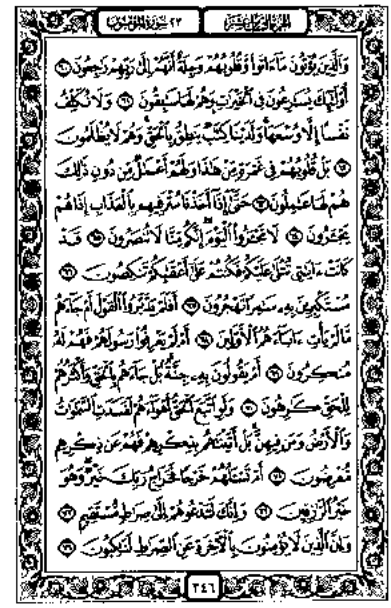 الجزء الثامن عشر ٢٣ سورة المؤمنون
وَالَّذِينَ يُؤْتُونَ مَآ ءَاتَوا۟ وَّقُلُوبُهُمْ وَجِلَةٌ أَنَّهُمْ إِلَىٰ رَبِّهِمْ رَٰجِعُونَ ٦٠
أُو۟لَٰٓئِكَ يُسَٰرِعُونَ فِى ٱلْخَيْرَٰتِ وَهُمْ لَهَا سَٰبِقُونَ ٦١ وَلَا نُكَلِّفُ
نَفْسًا إِلَّا وُسْعَهَا وَلَدَيْنَا كِتَٰبٌ يَنطِقُ بِٱلْحَقِّ وَهُمْ لَا يُظْلَمُونَ
٦٢ بَلْ قُلُوبُهُمْ فِى غَمْرَةٍ مِّنْ هَٰذَا وَلَهُمْ أَعْمَٰلٌ مِّن دُونِ ذَٰلِكَ
هُمْ لَهَا عَٰمِلُونَ ٦٣ حَتَّىٰٓ إِذَآ أَخَذْنَا مُتْرَفِيهِم بِٱلْعَذَابِ إِذَا هُمْ
يَجْـَٔرُونَ ٦٤ لَا تَجْـَٔرُوا۟ ٱلْيَوْمَ إِنَّكُم مِّنَّا لَا تُنصَرُونَ ٦٥ قَدْ
كَانَتْ ءَايَٰتِى تُتْلَىٰ عَلَيْكُمْ فَكُنتُمْ عَلَىٰٓ أَعْقَٰبِكُمْ تَنكِصُونَ ٦٦
مُسْتَكْبِرِينَ بِهِۦ سَٰمِرًا تَهْجُرُونَ ٦٧ أَفَلَمْ يَدَّبَّرُوا۟ ٱلْقَوْلَ أَمْ جَآءَهُم
مَّا لَمْ يَأْتِ ءَابَآءَهُمُ ٱلْأَوَّلِينَ ٦٨ أَمْ لَمْ يَعْرِفُوا۟ رَسُولَهُمْ فَهُمْ لَهُۥ
مُنكِرُونَ ٦٩ أَمْ يَقُولُونَ بِهِۦ جِنَّةٌۢ بَلْ جَآءَهُم بِٱلْحَقِّ وَأَكْثَرُهُمْ
لِلْحَقِّ كَٰرِهُونَ ٧٠ وَلَوِ ٱتَّبَعَ ٱلْحَقُّ أَهْوَآءَهُمْ لَفَسَدَتِ ٱلسَّمَٰوَٰتُ
وَٱلْأَرْضُ وَمَن فِيهِنَّ بَلْ أَتَيْنَٰهُم بِذِكْرِهِمْ فَهُمْ عَن ذِكْرِهِم
مُّعْرِضُونَ ٧١ أَمْ تَسْـَٔلُهُمْ خَرْجًا فَخَرَاجُ رَبِّكَ خَيْرٌ وَهُوَ
خَيْرُ ٱلرَّٰزِقِينَ ٧٢ وَإِنَّكَ لَتَدْعُوهُمْ إِلَىٰ صِرَٰطٍ مُّسْتَقِيمٍ ٧٣
وَإِنَّ ٱلَّذِينَ لَا يُؤْمِنُونَ بِٱلْءَاخِرَةِ عَنِ ٱلصِّرَٰطِ لَنَٰكِبُونَ ٧٤
٣٤٦